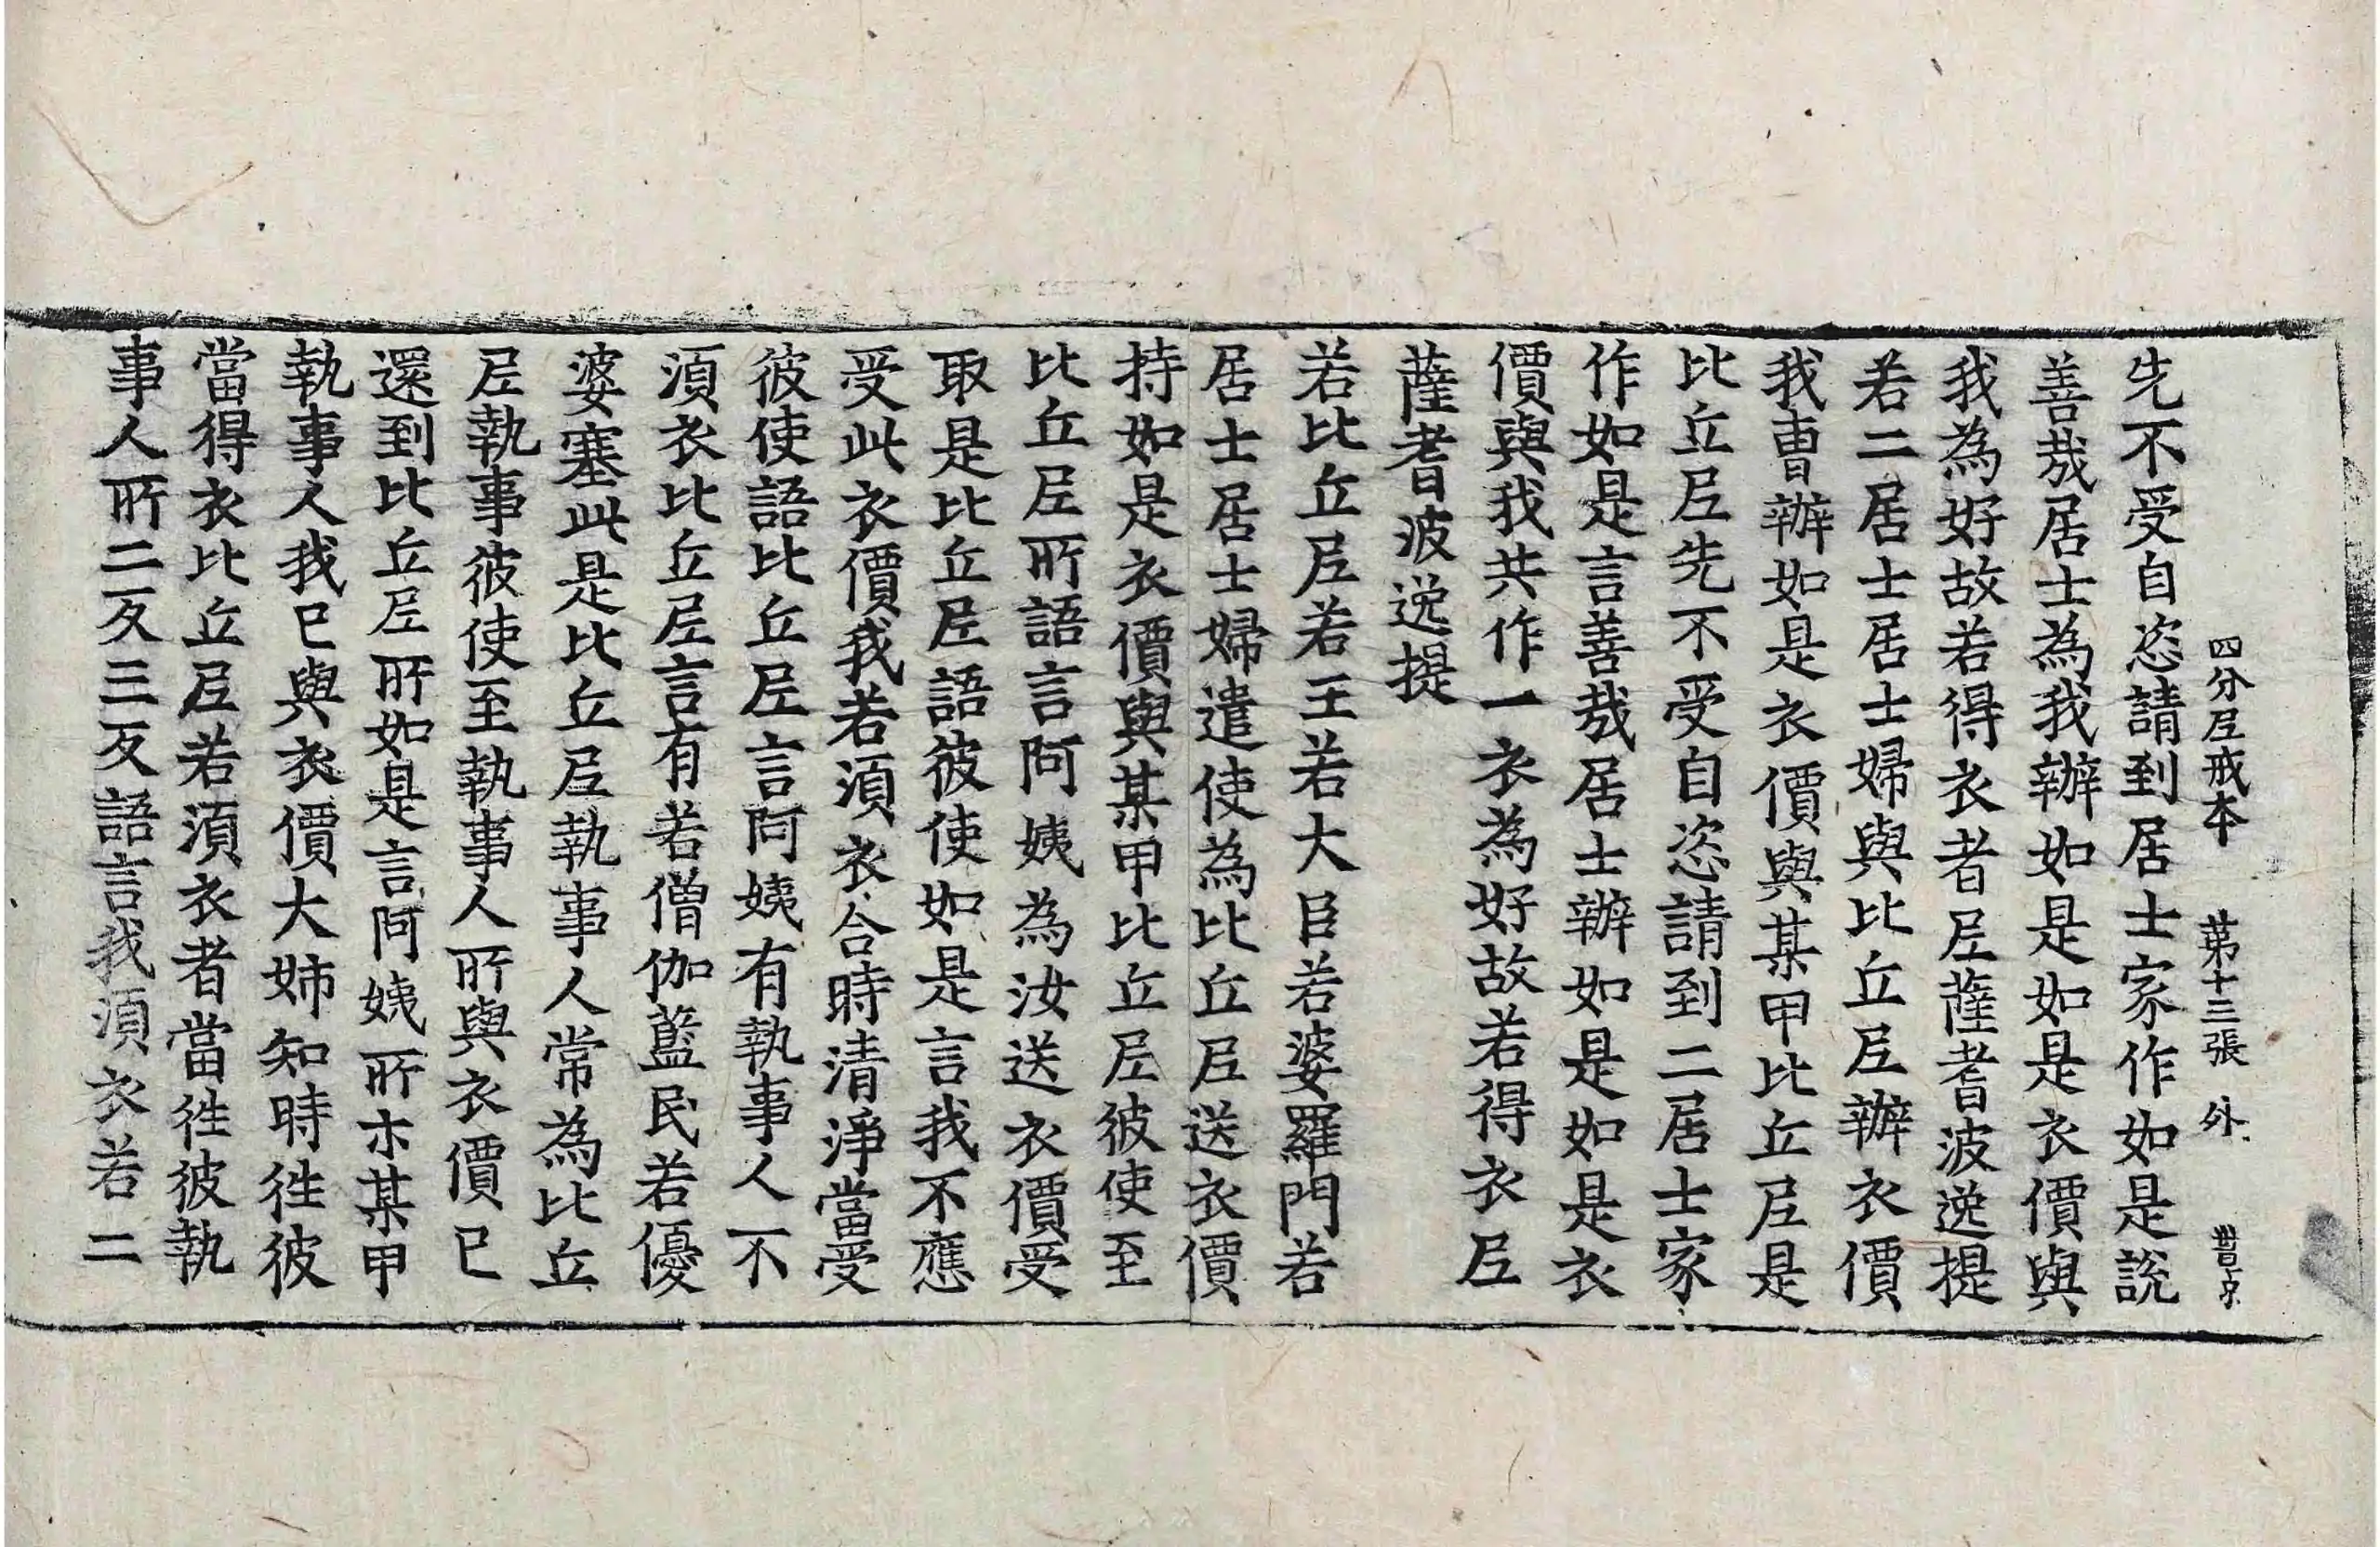 四分尼戒本 第十三張 外
先不受自恣請到居士家作如是說
善哉居士為我辦如是如是衣價與
我為好故若得衣者尼薩耆波逸提
若二居士居士婦與比丘尼辦衣價
我曹辦如是衣價與某甲比丘尼是
比丘尼先不受自恣請到二居士家
作如是言善哉居士辦如是如是衣
價與我共作一衣為好故若得衣尼
薩耆波逸提
若比丘尼若王若大臣若婆羅門若
居士居士婦遣使為比丘尼送衣價
持如是衣價與某甲比丘尼彼使至
比丘尼所語言阿姨為汝送衣價受
取是比丘尼語彼使如是言我不應
受此衣價我若須衣合時清淨當受
彼使語比丘尼言阿姨有執事人不
須衣比丘尼言有若僧伽藍民若優
婆塞此是比丘尼執事人常為比丘
尼執事彼使至執事人所與衣價已
還到比丘尼所如是言阿姨所示某甲
執事人我已與衣價大姉知時徃彼
當得衣比丘尼若須衣者當徃彼執
事人所二反三反語言我須衣若二